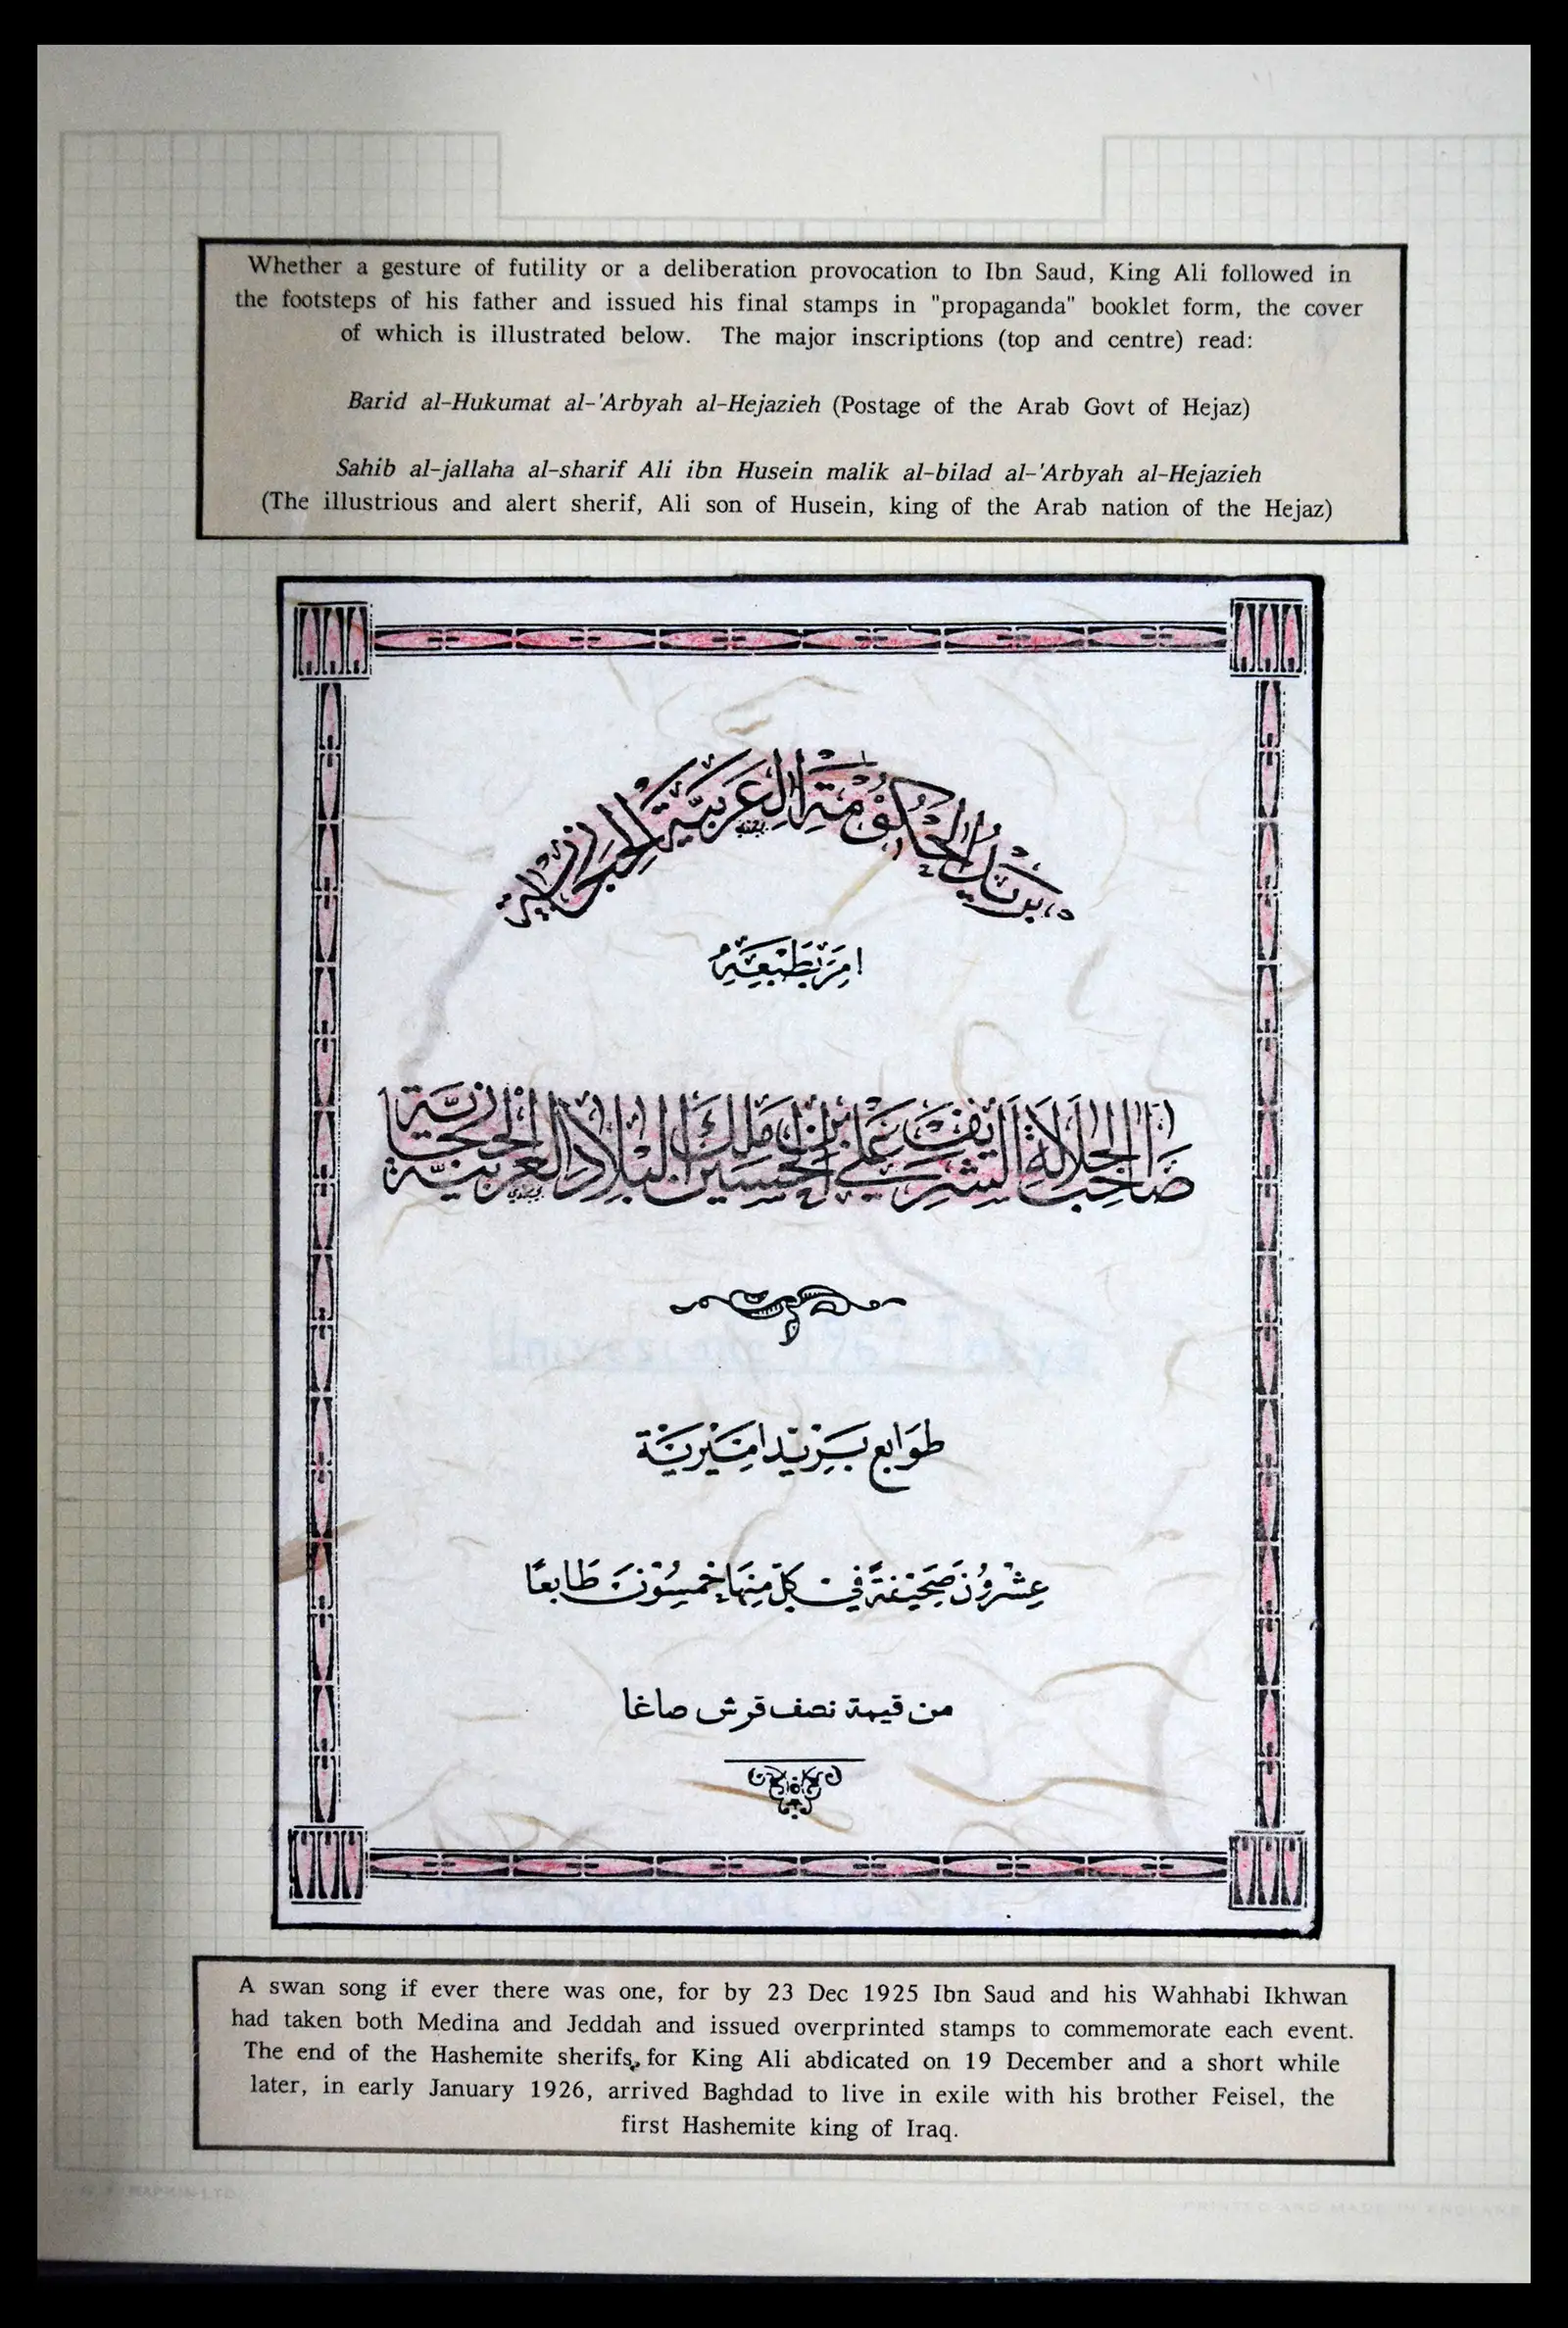 Whether a gesture of futility or a deliberation provocation to Ibn Saud, King Ali followed in
the footsteps of his father and issued his final stamps in "propaganda" booklet form, the cover
of which is illustrated below. The major inscriptions (top and centre) read:
Barid al-Hukumat al-'Arbyah al-Hejazieh (Postage of the Arab Govt of Hejaz)
Sahib al-jallaha al-sharif Ali ibn Husein malik al-bilad al-'Arbyah al-Hejazieh
(The illustrious and alert sherif, Ali son of Husein, king of the Arab nation of the Hejaz)
بريد الحكومة العربية الحجازية
امر بطبعه
صاحب الجلالة الشريف علي بن الحسين ملك البلاد العربية الحجازية
طوابع بريد اميرية
عشرون صحيفة في كل منها خمسون طابعا
من قيمة نصف قرش صاغا
A swan song if ever there was one, for by 23 Dec 1925 Ibn Saud and his Wahhabi Ikhwan
had taken both Medina and Jeddah and issued overprinted stamps to commemorate each event.
The end of the Hashemite sherifs, for King Ali abdicated on 19 December and a short while
later, in early January 1926, arrived Baghdad to live in exile with his brother Feisel, the
first Hashemite king of Iraq.
PRINTED AND MADE IN ENGLAND